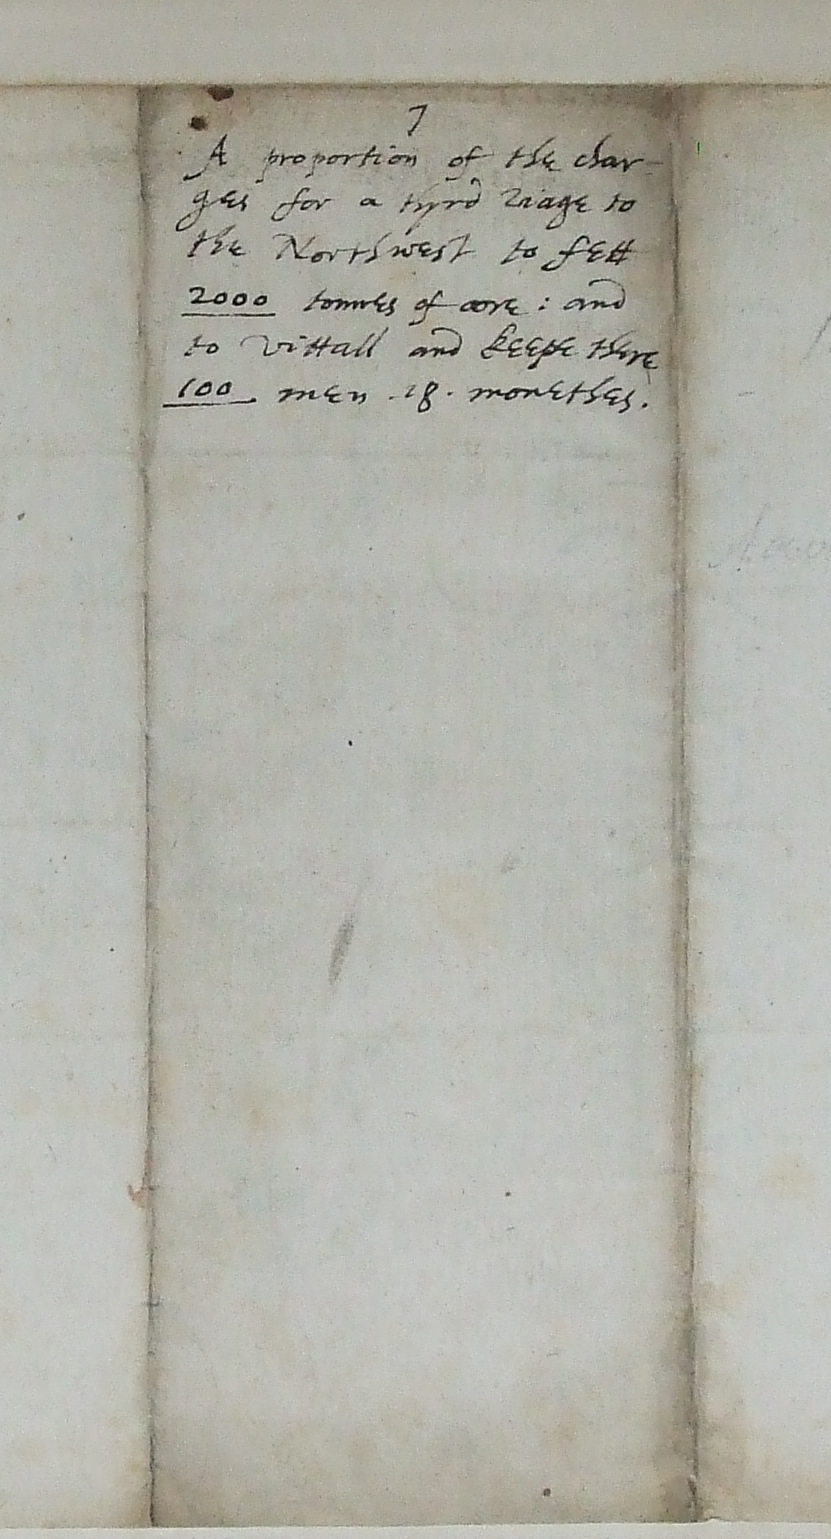 7
A proportion of the char-
ges for a thyrd viage to
the Northwest to fett
2000 tonnes of oore : and
to vittall and keepe there
100 . men . 18 . monethes .